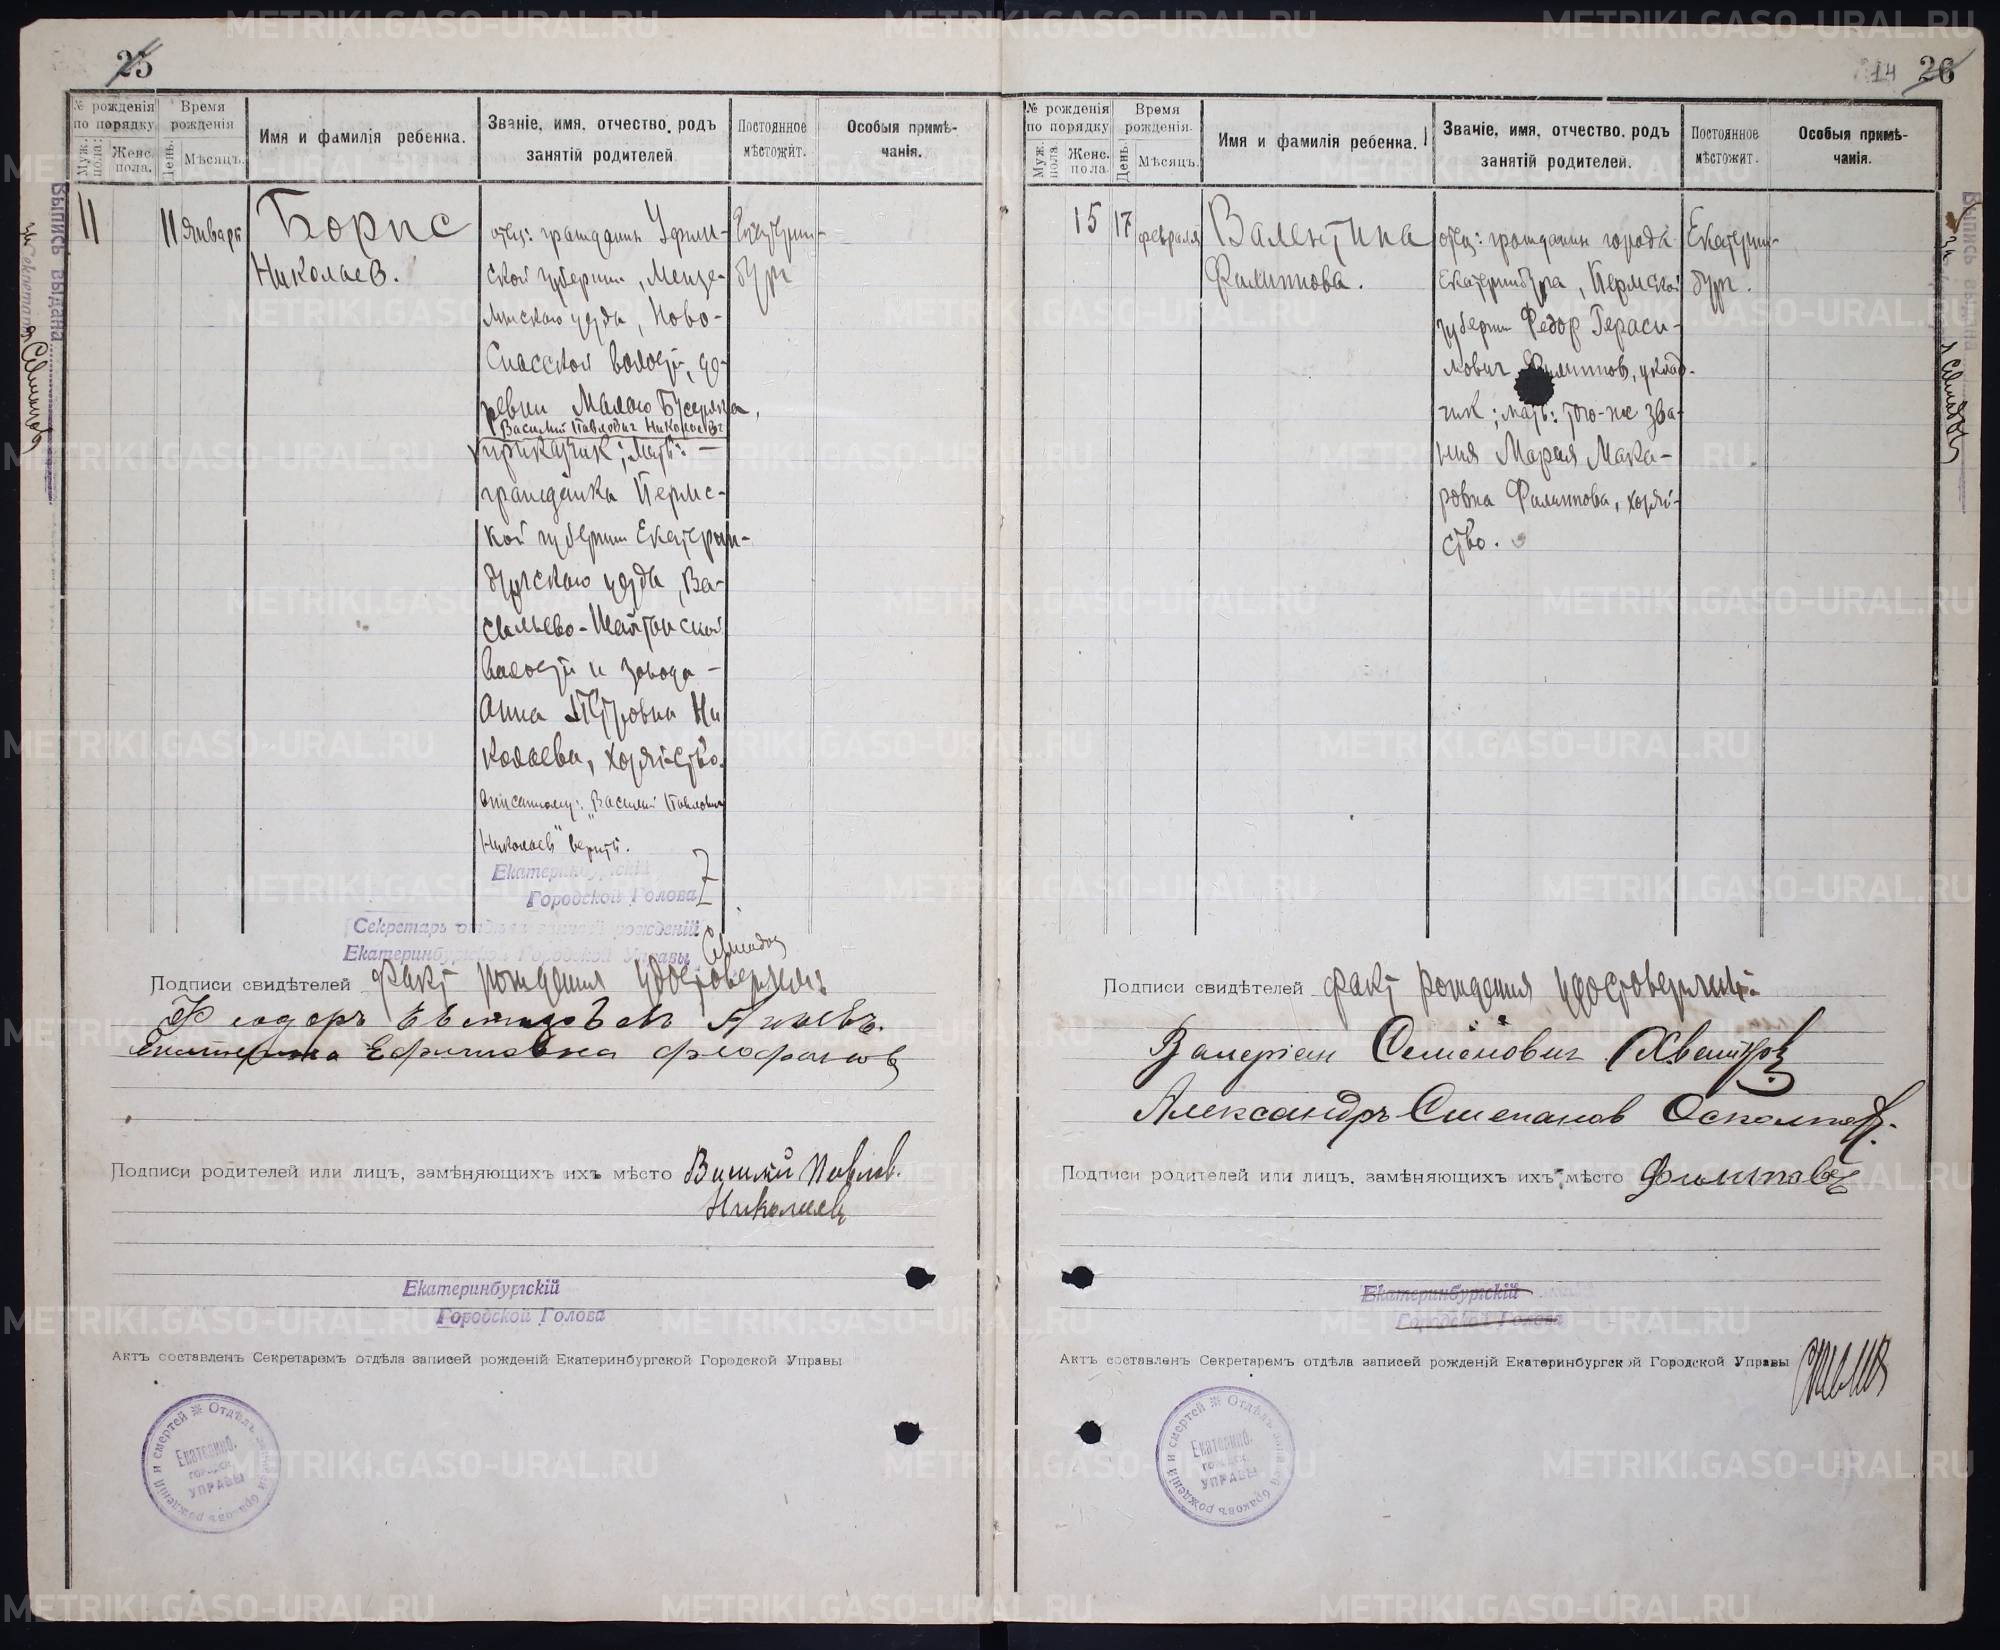 25
№ рожденія по порядку
Муж. пола.
Женс. пола.
Время рожденія
День.
Мѣсяцъ.
Имя и фамилія ребенка.
Званіе, имя, отчество, родъ
занятій родителей
Постоянное
мѣстожит.
Особыя примѣ-
чанія.
11
11 Января
Борис
Николаев.
отец: гражданин Уфим-
ской губернии, Мензе-
линского уезда, Ново-
Спасской волости, де-
ревни Малого
Василий Павлович Николаев
приказчик; мать: —
гражданка Пермс-
кой губернии Екатерин-
бургского уезда, Ва-
сильево-Шайтанской
волости и завода —
Анна Петровна Ни
колаева, хозяйство.
Описанному: "Василий Павлович
Николаев" верить.
Екатерин-
бург
Екатеринбургскій
Городской Голова
Секретарь отдѣла записей рожденій
Екатеринбургской Городской Управы
Подписи свидѣтелей Факт рождения удостоверяем:
Екатерина Ефимовна
Подписи родителей или лицъ, замѣняющихъ ихъ мѣсто Василий Павлов.
Николаевъ
Екатеринбургскій
Городской Голова
Актъ составленъ Секретаремъ отдѣла записей рожденій Екатеринбургской Городской Управы
Екатеринб.
городск.
УПРАВЫ
Выпись выдана
14 26
№ рожденія по порядку
Муж. пола
Женс. пола
Время рожденія.
День.
Мѣсяцъ.
Имя и фамилія ребенка.
Званіе, имя, отчество, родъ
занятій родителей.
Постоянное
мѣстожит.
Особыя примѣ-
чанія.
15 17 февраля
Валентина
Филиппова.
отец: гражданин города
Екатеринбурга, Пермской
губернии Федор Гераси-
мович Филиппов, уклад-
чик; мать: того-же зва-
ния Мария Мака-
ровна Филиппова, хозяй-
ство.
Екатерин-
бург.
Подписи свидѣтелей Факт рождения удостоверяем:
Валерiан Семёнович
Александръ Степанов
Подписи родителей или лицъ, замѣняющихъ ихъ мѣсто Филиппов
Екатеринбургскій
Городской Голова
Актъ составленъ Секретаремъ отдѣла записей рожденій Екатеринбургской Городской Управы
Екатеринб.
городск.
УПРАВЫ
Выпись выдана
METRIKI.GASO-URAL.RU